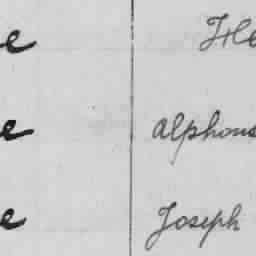 e He
e Alphons
e Joseph